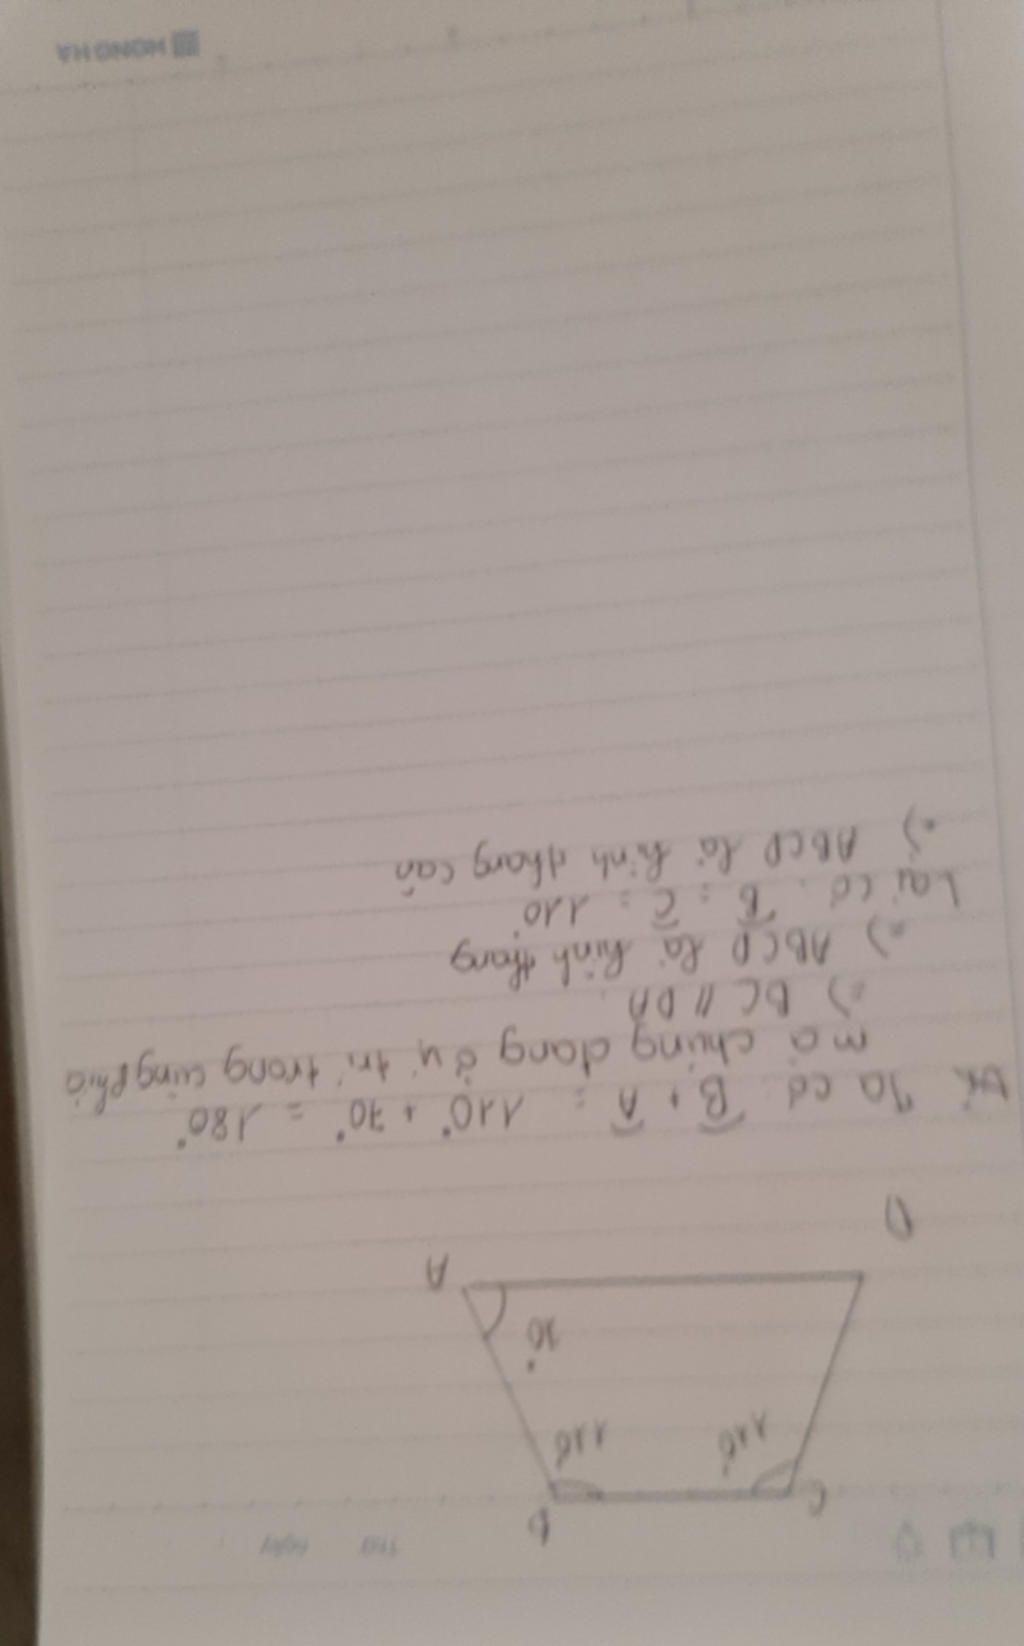 Thứ Ngày
C B
110° 110°
70°
D A
Ta có B + A = 110° + 70° = 180°
mà chúng đang ở vị trí trong cùng phía
=> BC // DA
=> ABCD là hình thang
Lại có B = C = 110°
=> ABCD là hình thang cân
HONG HA